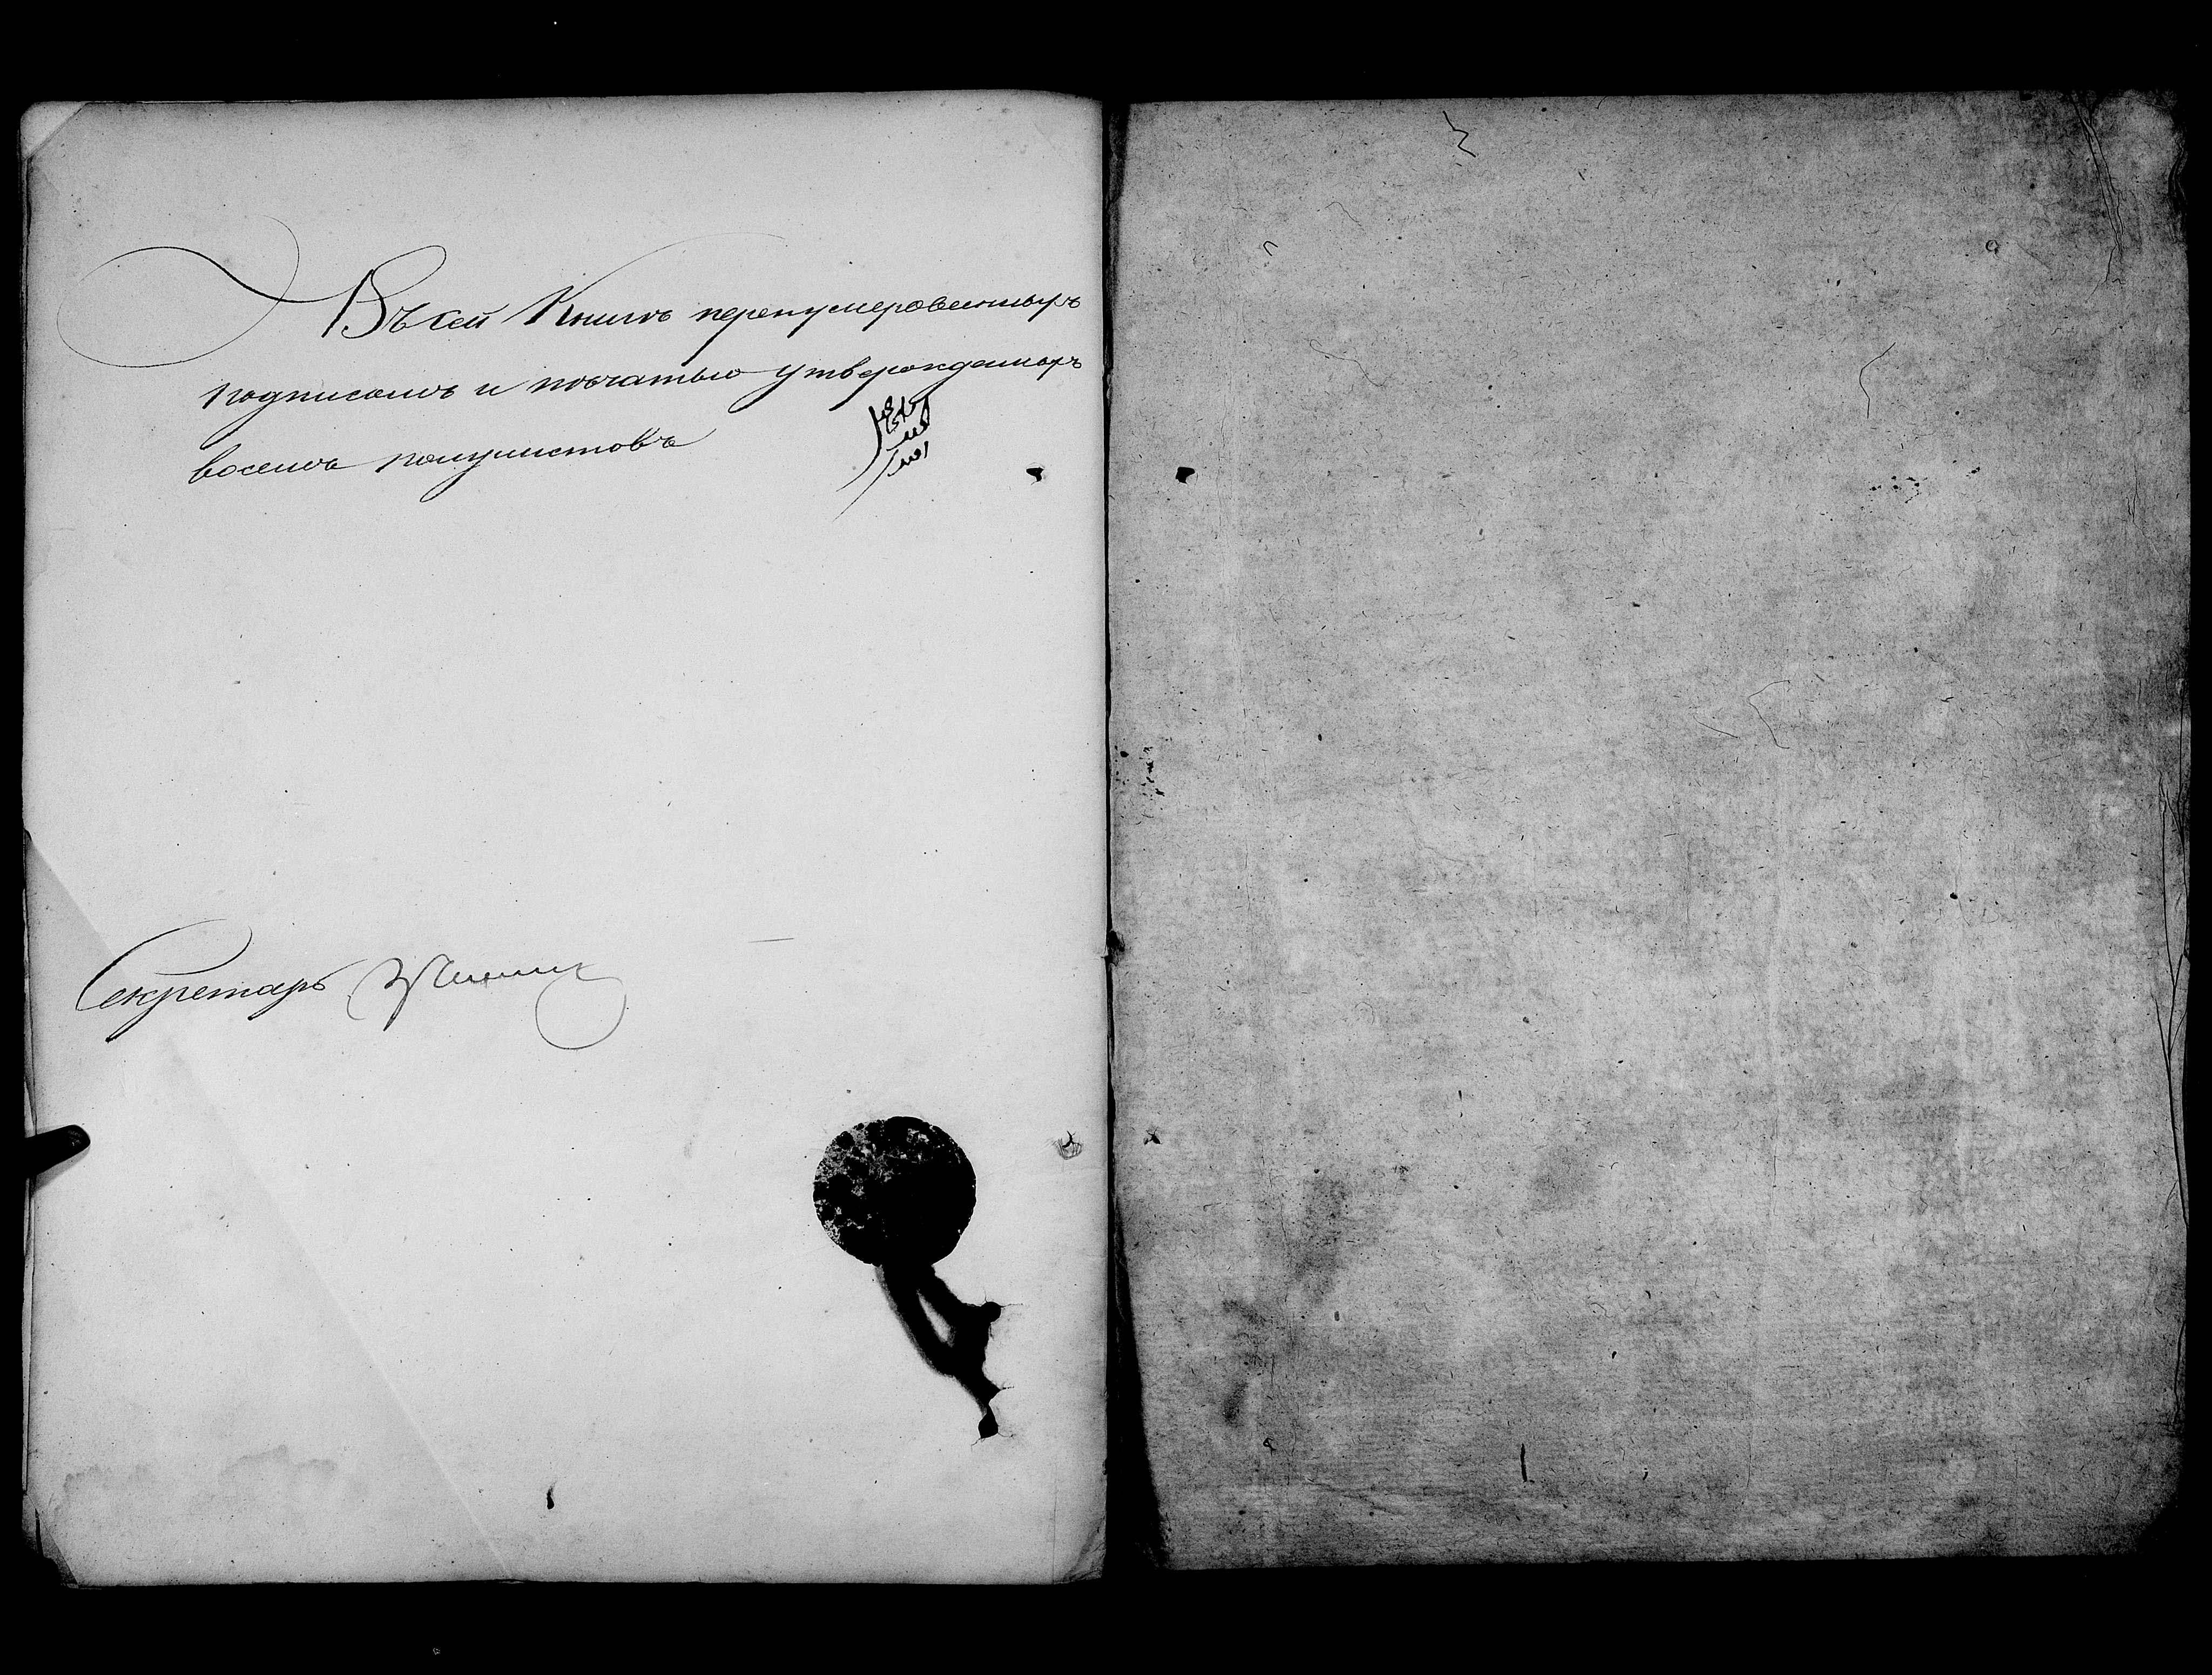 Въ сей Книгѣ перенумерованныхъ
подписомъ и пѣчатью утвержденныхъ
восемь полулистовъ
Секретарь